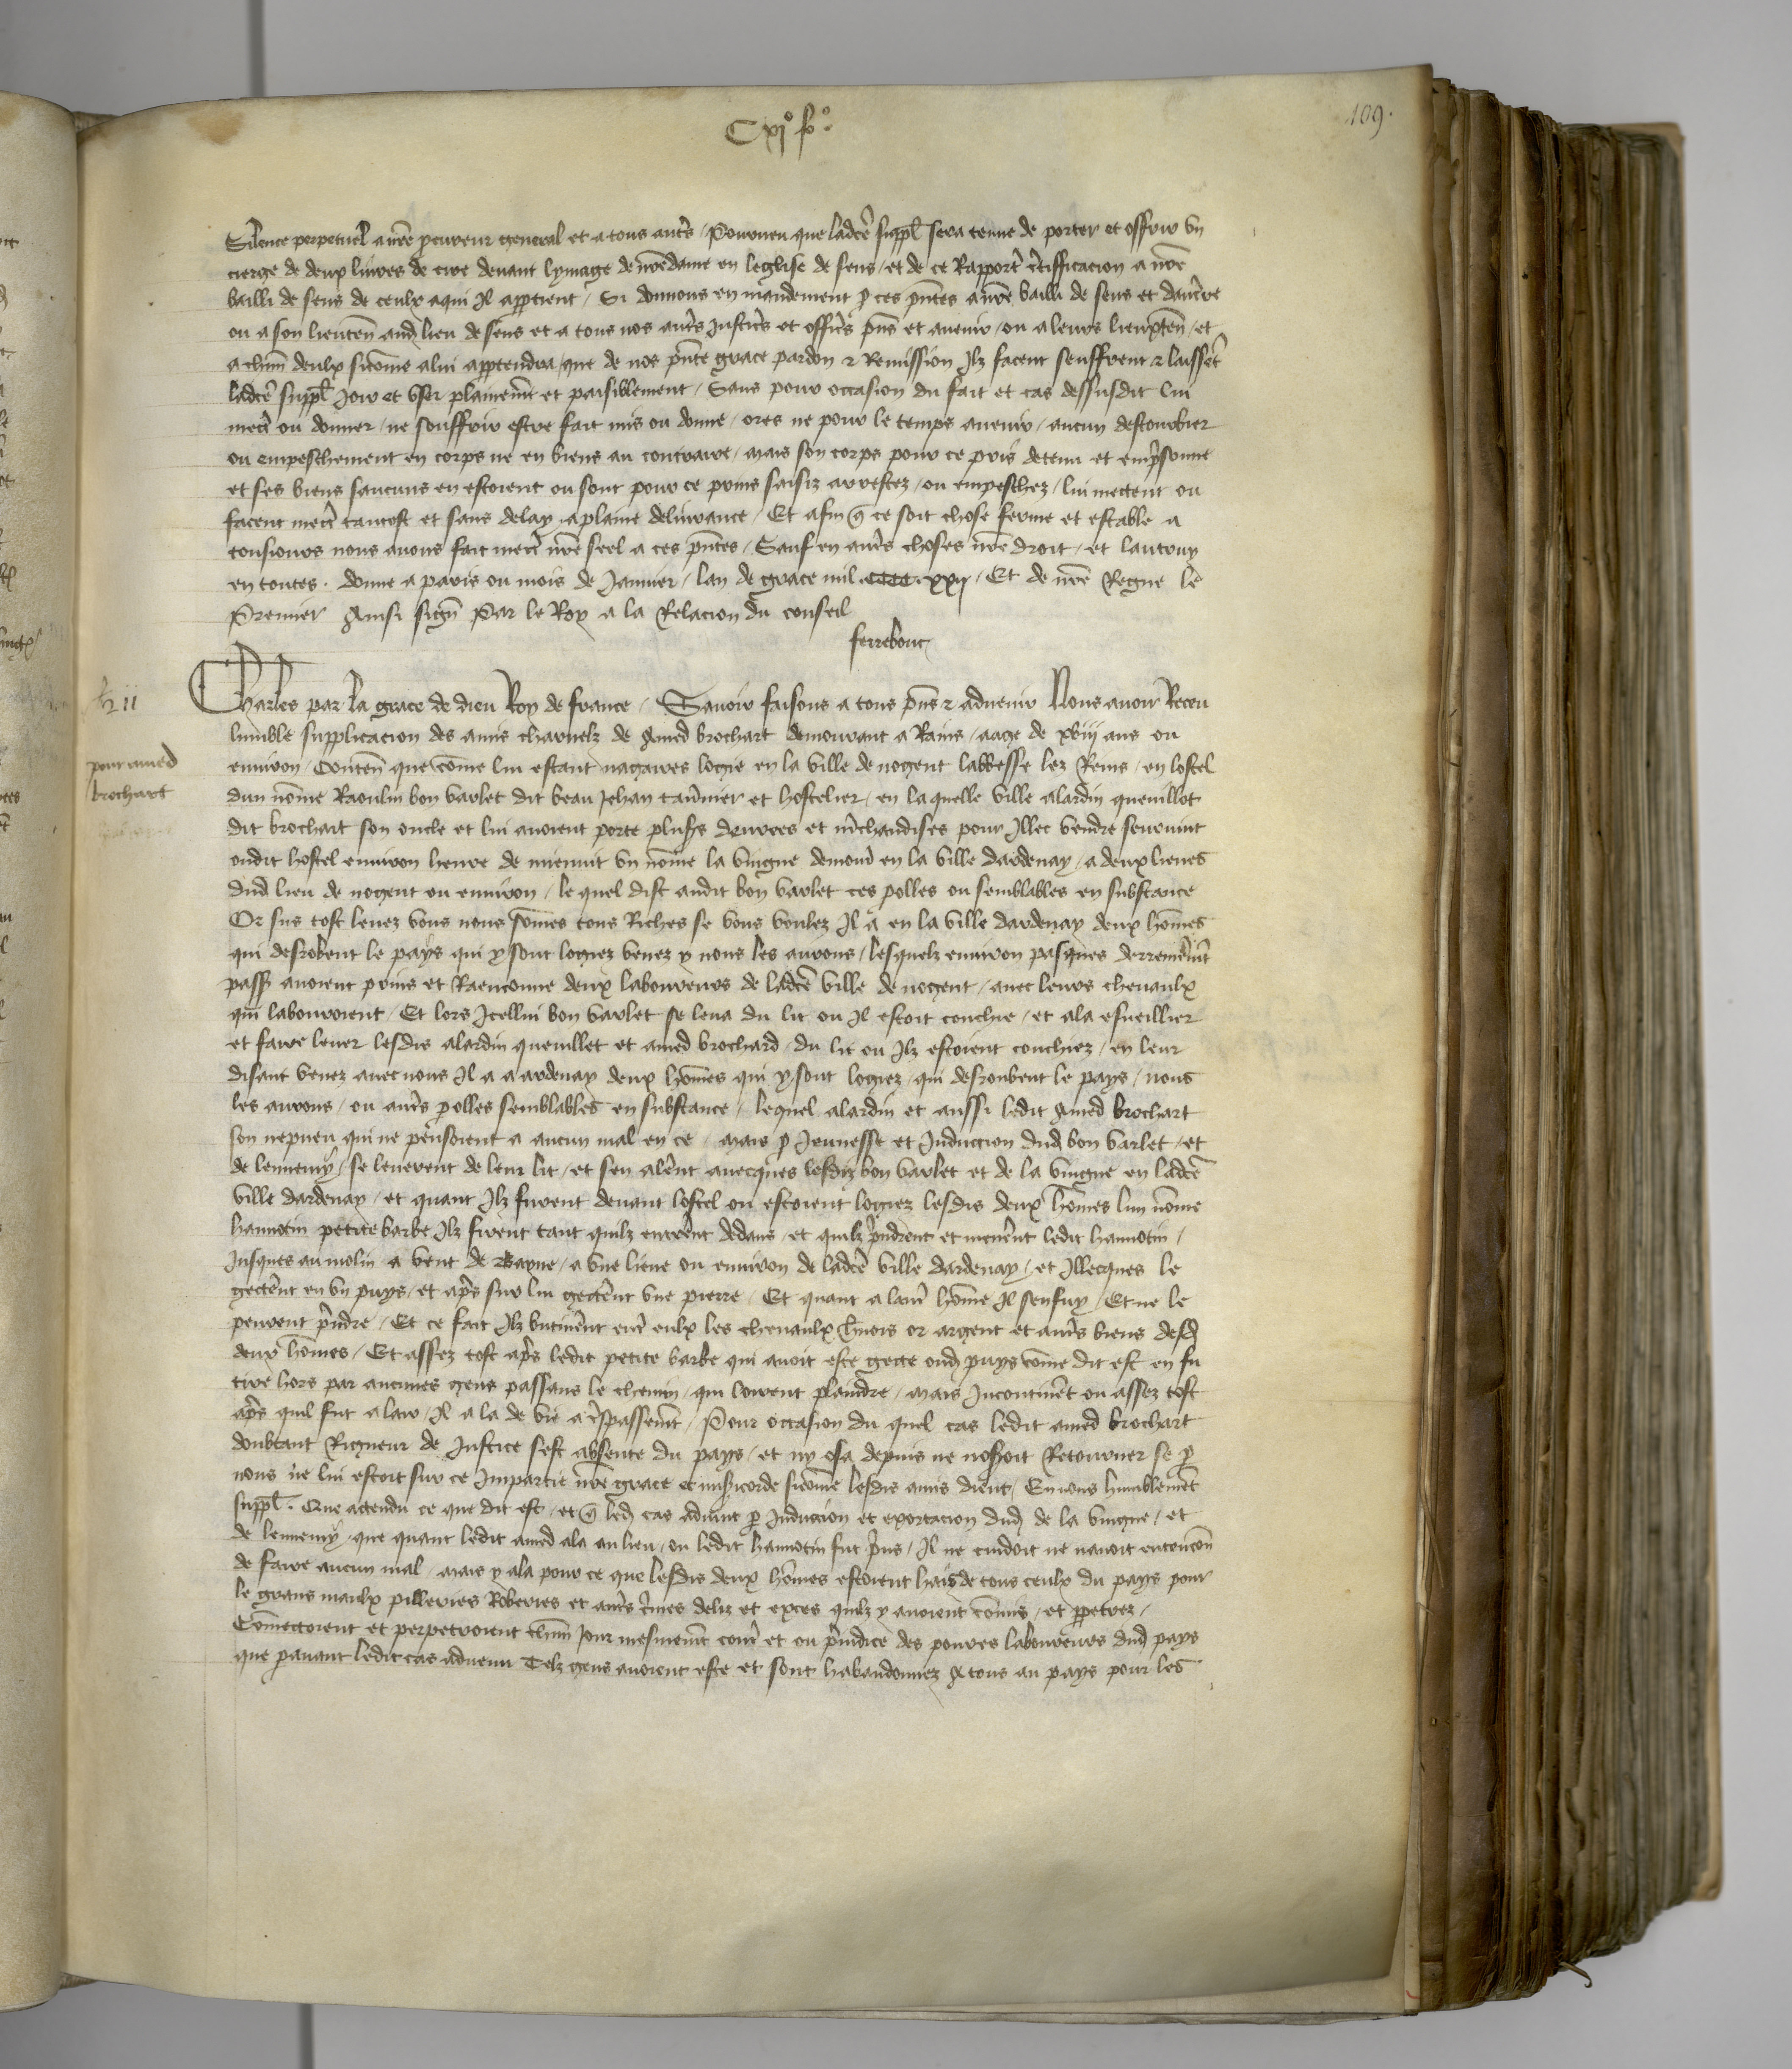 Cxjº fº
109.
Silence perpetuel a nre procureur general et a tous autres / Pourueu que ladce suppl sera tenue de porter et offrir vn
cierge de deux liures de cire deuant lymage de nredame en leglise de sens / et de ce Rapporter certifficacion a nre
bailli de sens de ceulx a qui Il appartient / Si donnons en mandement par ces pntes a nre bailli de sens et daucerre
ou a son lieuten aud lieu de sens et a tous nos autres Justiciers et officiers pns et auenir / ou a leurs lieuxten / et
a chun deulx sicome a lui appartendra / que de nos pnte grace pardon & Remission Ilz facent seuffrent & laissent
ladce suppl Joir et vser plainemt et paisiblement / Sans pour occasion du fait et cas dessusdit lui
mectre ou donner / ne souffrir estre fait mis ou donne / ores ne pour le temps auenir / aucun destourbier
ou empeschement en corps ne en biens au contraire / mais son corps pour ce pris detenu et emprisonne
et ses biens saucuns en estoient ou sont pour ce prins saisiz arrestez / ou empeschez / lui mectent ou
facent mectre tantost et sans delay a plaine deliurance / Et afin que ce soit chose ferme et estable a
tousiours nous auons fait mectre nre seel a ces pntes / Sauf en autres choses nre droit / et lautruy
en toutes . donne a paris ou mois de Januier / lan de grace mil .cccc. xxij / Et de nre Regne le
Premier Ainsi sign Par le Roy a la Relacion du conseil
ferrebouc
Charles par la grace de dieu Roy de france / Sauoir faisons a tous pns & aduenir Nous auoir Receu
lumble supplicacion des amis charnelz de Amed brochart demourant a Rains / aage de xviij ans ou
pour amed
brochart
enuiron / Conten que come lui estant nagaires logie en la ville de nogent labbesse lez Reins / en lostel
dun nome Raoulin bon varlet dit beau Jehan tauernier et hostelier / en laquelle ville alardin queuillot
dit brochart son oncle et lui auoient porte plushs denrees et mchandises pour Illec vendre seuruint
oudit hostel enuiron heure de mienuit vn nome la vuigne demourant en la ville dardenay / a deux lieues
dud lieu de nogent ou enuiron / le quel dist audit bon varlet ces polles ou semblables en substance
Or sus tost leuez vous nous somes tous Riches se vous voulez Il a en la ville dardenay deux homes
qui desrobent le pays qui y sont logiez venez y nous les aurons / lesquelz enuiron pasques derrenieremt
passe auoient prins et Raenconne deux laboureurs de ladce ville de nogent / auec leurs cheuaulx
qui labouroient / Et lors Jcellui bon varlet se leua du lit ou Il estoit couchie / et ala esueillier
et faire leuer lesdis alardin queuillet et amed brochard / du lit ou Ilz estoient couchiez / en leur
disant venez auec nous Il a a ardenay deux homes qui y sont logiez / qui desroubent le pays / nous
les aurons / ou autres polles semblables en substance / lequel alardin et aussi ledit Amed brochart
son nepueu qui ne pensoient a aucun mal en ce / mais par Jeunesse et Induccion dud bon varlet / et
de lennemy / se leuerent de leur lit / et sen alerent auecques lesdiz bon varlet et de la vuigne en ladce
ville dardenay / et quant Ilz furent deuant lostel ou estoient logiez lesdis deux homes lun nome
hannotin petite barbe Ilz firent tant quilz entrerent dedans / et quilz prindrent et menerent ledit hannotin /
Jusques au molin a vent de wayne / a vne lieue ou enuiron de ladce ville dardenay / et Illecques le
gecterent en vn puys / et apres sur lui gecterent vne pierre / Et quant a lautre home Il senfuy / Et ne le
peurent prendre / Et ce fait Ilz butinerent entre eulx les cheuaulx harnois or argent et autres biens desd
deux homes / Et assez tost apres ledit petite barbe qui auoit este gecte oud puys come dit est en fu
tire hors par aucunes gens passans le chemin / qui loirent plaindre / mais Incontinent ou assez tost
apres quil fut a lair / Il ala de vie a trespassemt / Pour occasion du quel cas ledit amed brochart
doubtant Rigueur de Justice sest absente du pays / et ny osa depuis ne noseroit Retourner se par
nous ne lui estoit sur ce Impartie nre grace et misericorde sicome lesdis amis dient / En nous humblement
suppl . Que actendu ce que dit est / et que led cas aduint par Induccion et exortacion dud de la vuigne / et
de lennemy / que quant ledit amed ala au lieu / ou ledit hannotin fut prins / Il ne cuidoit ne nauoit entencion
de faire aucun mal / mais y ala pour ce que lesdis deux homes estoient hais de tous ceulx du pays pour
le grans maulx pilleries Roberies et autres crimes deliz et exces quilz y auoient comis / et perpetrez /
Comectoient et perpetroient chun Jour mesmemt contre et ou preiudice des poures laboureurs dud pays
que parauant ledit cas aduenu Telz gens auoient este et sont habandonnez A tous au pays pour les